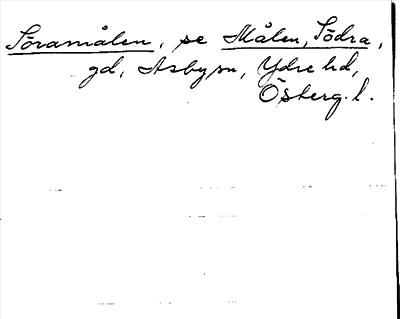 Söramålen, se Målen, Södra,
gd, Asby sn, Ydre hd,
Österg. l.